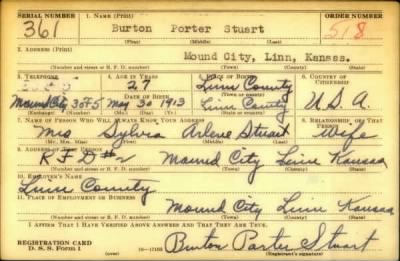 SERIAL NUMBER 1. NAME (Print) ORDER NUMBER
361 Burton Porter Stuart 518
(First) (Middle) (Last)
2. ADDRESS (Print)
Mound City, Linn, Kansas.
(Number and street or R. F. D. number) (Town) (County) (State)
3. TELEPHONE 4. AGE IN YEARS 5. PLACE OF BIRTH 6. COUNTRY OF CITIZENSHIP
27 Linn County
Mound City 30F5 May 30 1913 Linn County U.S.A.
(Exchange) (Number) (Mo.) (Day) (Yr.) (State or country)
DATE OF BIRTH
7. NAME OF PERSON WHO WILL ALWAYS KNOW YOUR ADDRESS 8. RELATIONSHIP OF THAT PERSON
Mrs Sylvia Arlene Stuart Wife
(Mr., Mrs., Miss) (First) (Middle) (Last)
9. ADDRESS OF THAT PERSON
R F D #2 Mound City Linn Kansas
(Number and street or R. F. D. number) (Town) (County) (State)
10. EMPLOYER'S NAME
Linn County
11. PLACE OF EMPLOYMENT OR BUSINESS
Mound City Linn Kansas
(Number and street or R. F. D. number) (Town) (County) (State)
I AFFIRM THAT I HAVE VERIFIED ABOVE ANSWERS AND THAT THEY ARE TRUE.
REGISTRATION CARD
D. S. S. Form 1 Burton Porter Stuart
(Registrant's signature)